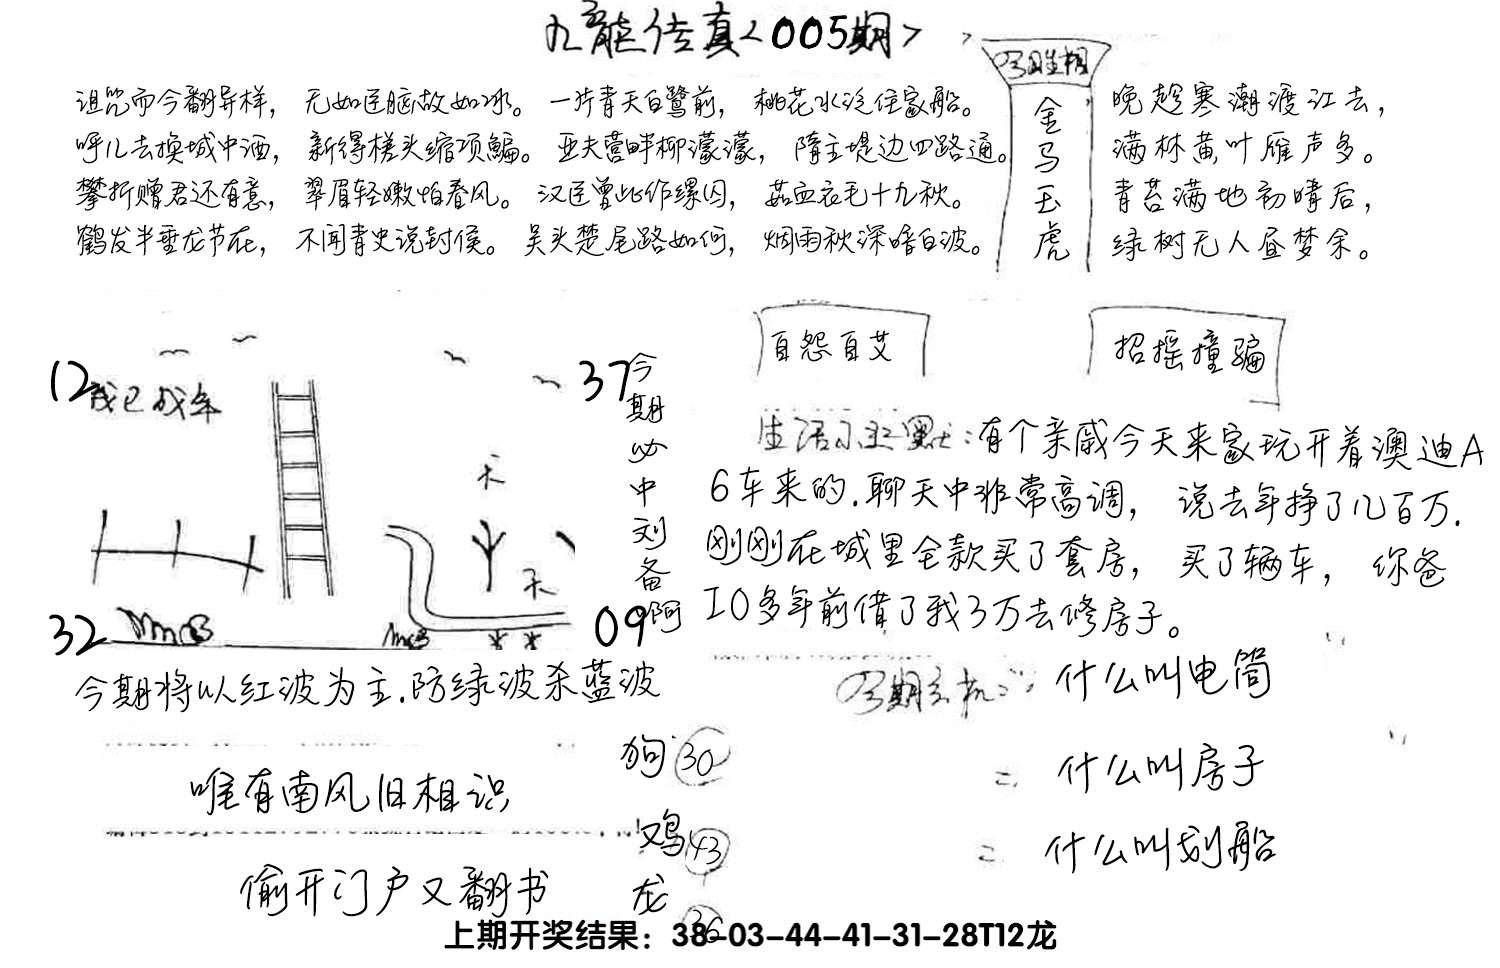 九龍传真<005期>
诅咒而今翻异样，无如医脑故如冰。一片青天白鹭前，桃花水泛住家船。
呼儿去换城中酒，新得槎头缩项鳊。亚夫营畔柳濛濛，隋主堤边四路通。
攀折赠君还有意，翠眉轻嫩怕春风。汉臣曾此作缧囚，茹血衣毛十九秋。
鹤发半垂龙节在，不闻青史说封侯。吴头楚尾路如何，烟雨秋深暗白波。
今日生相
金马玉虎
晚趁寒潮渡江去，
满林黄叶雁声多。
青苔满地初晴后，
绿树无人昼梦余。
12
我已成年
37
今期必中刘备啊
天
天
32
09
今期将以红波为主.防绿波杀蓝波
自怨自艾
招摇撞骗
生活小幽默:有个亲戚今天来家玩开着澳迪A
6车来的.聊天中非常高调，说去年挣了几百万.
刚刚在城里全款买了套房，买了辆车，你爸
10多年前借了我3万去修房子。
今期玄机:什么叫电筒
=什么叫房子
=什么叫划船
唯有南风旧相识
偷开门户又翻书
狗30
鸡43
龙36
上期开奖结果：38-03-44-41-31-28T12龙